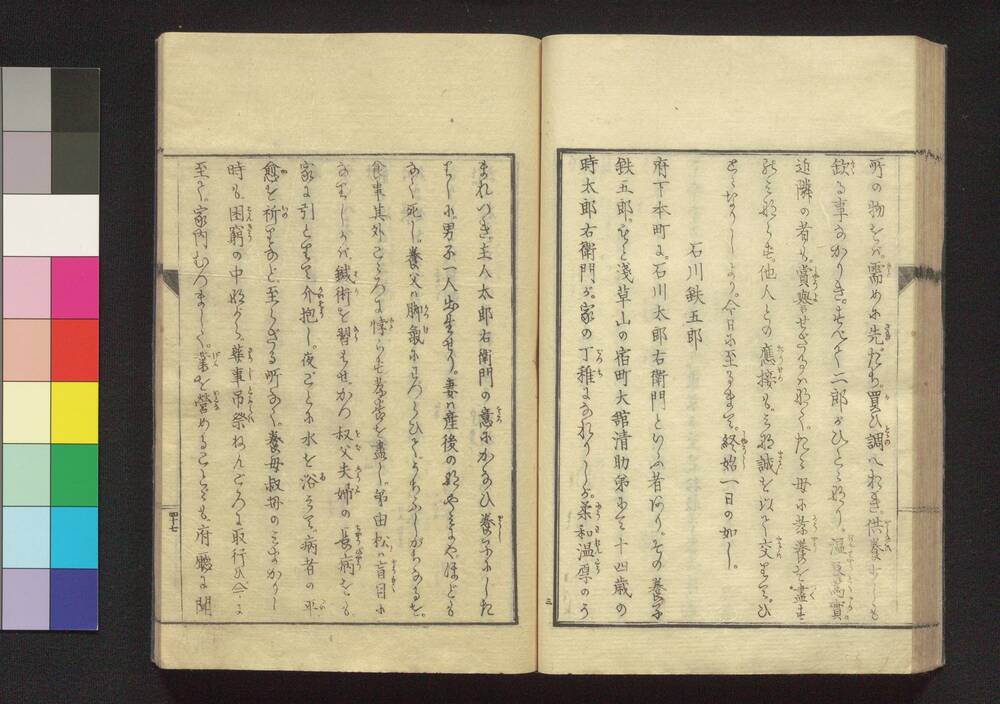 所の物をバ。需めに先だち。買ひ調へおき。供養少しも
欠る事なかりき。すべて二郎がひとゝなり。温良篤實
近隣の者も。賞與せざるハなく。たゞ母に孝養を盡す
のミならず。他人との應接も。ミな誠を以て交りて。ひ
とゝなりしより。今日に至るまで。終始一日の如し。
石川鉄五郎
府下本町に。石川太郎右衛門といふ者あり。その養子
鉄五郎。もと淺草山の宿町大舘清助弟にて十四歳の
時太郎右衛門が。家の丁稚になれりしが。柔和温厚のう
まれつき。主人太郎右衛門の意にかなひ養子にした
りしに。男子一人出生せり。妻ハ産後のなやミにや。ほども
なく死し。養父ハ脚氣にわづらひて。うちふしがちなるを。
食事其外こゝろに悖らず孝養を盡し。弟由松ハ盲目に
なりしかバ。鍼術を習ハせ。かつ叔父夫婦の長病をも
家に引とりて介抱し。夜ごとに水を浴ミて。病者の平
愈を祈りなど至らざる所なく。養母叔母のミまかりし
時も。困窮の中ながら。葬事吊祭ねんごろに取行ひ。今に
至る。家内むつましく。業を營めること。も府廳に聞
四十七
三